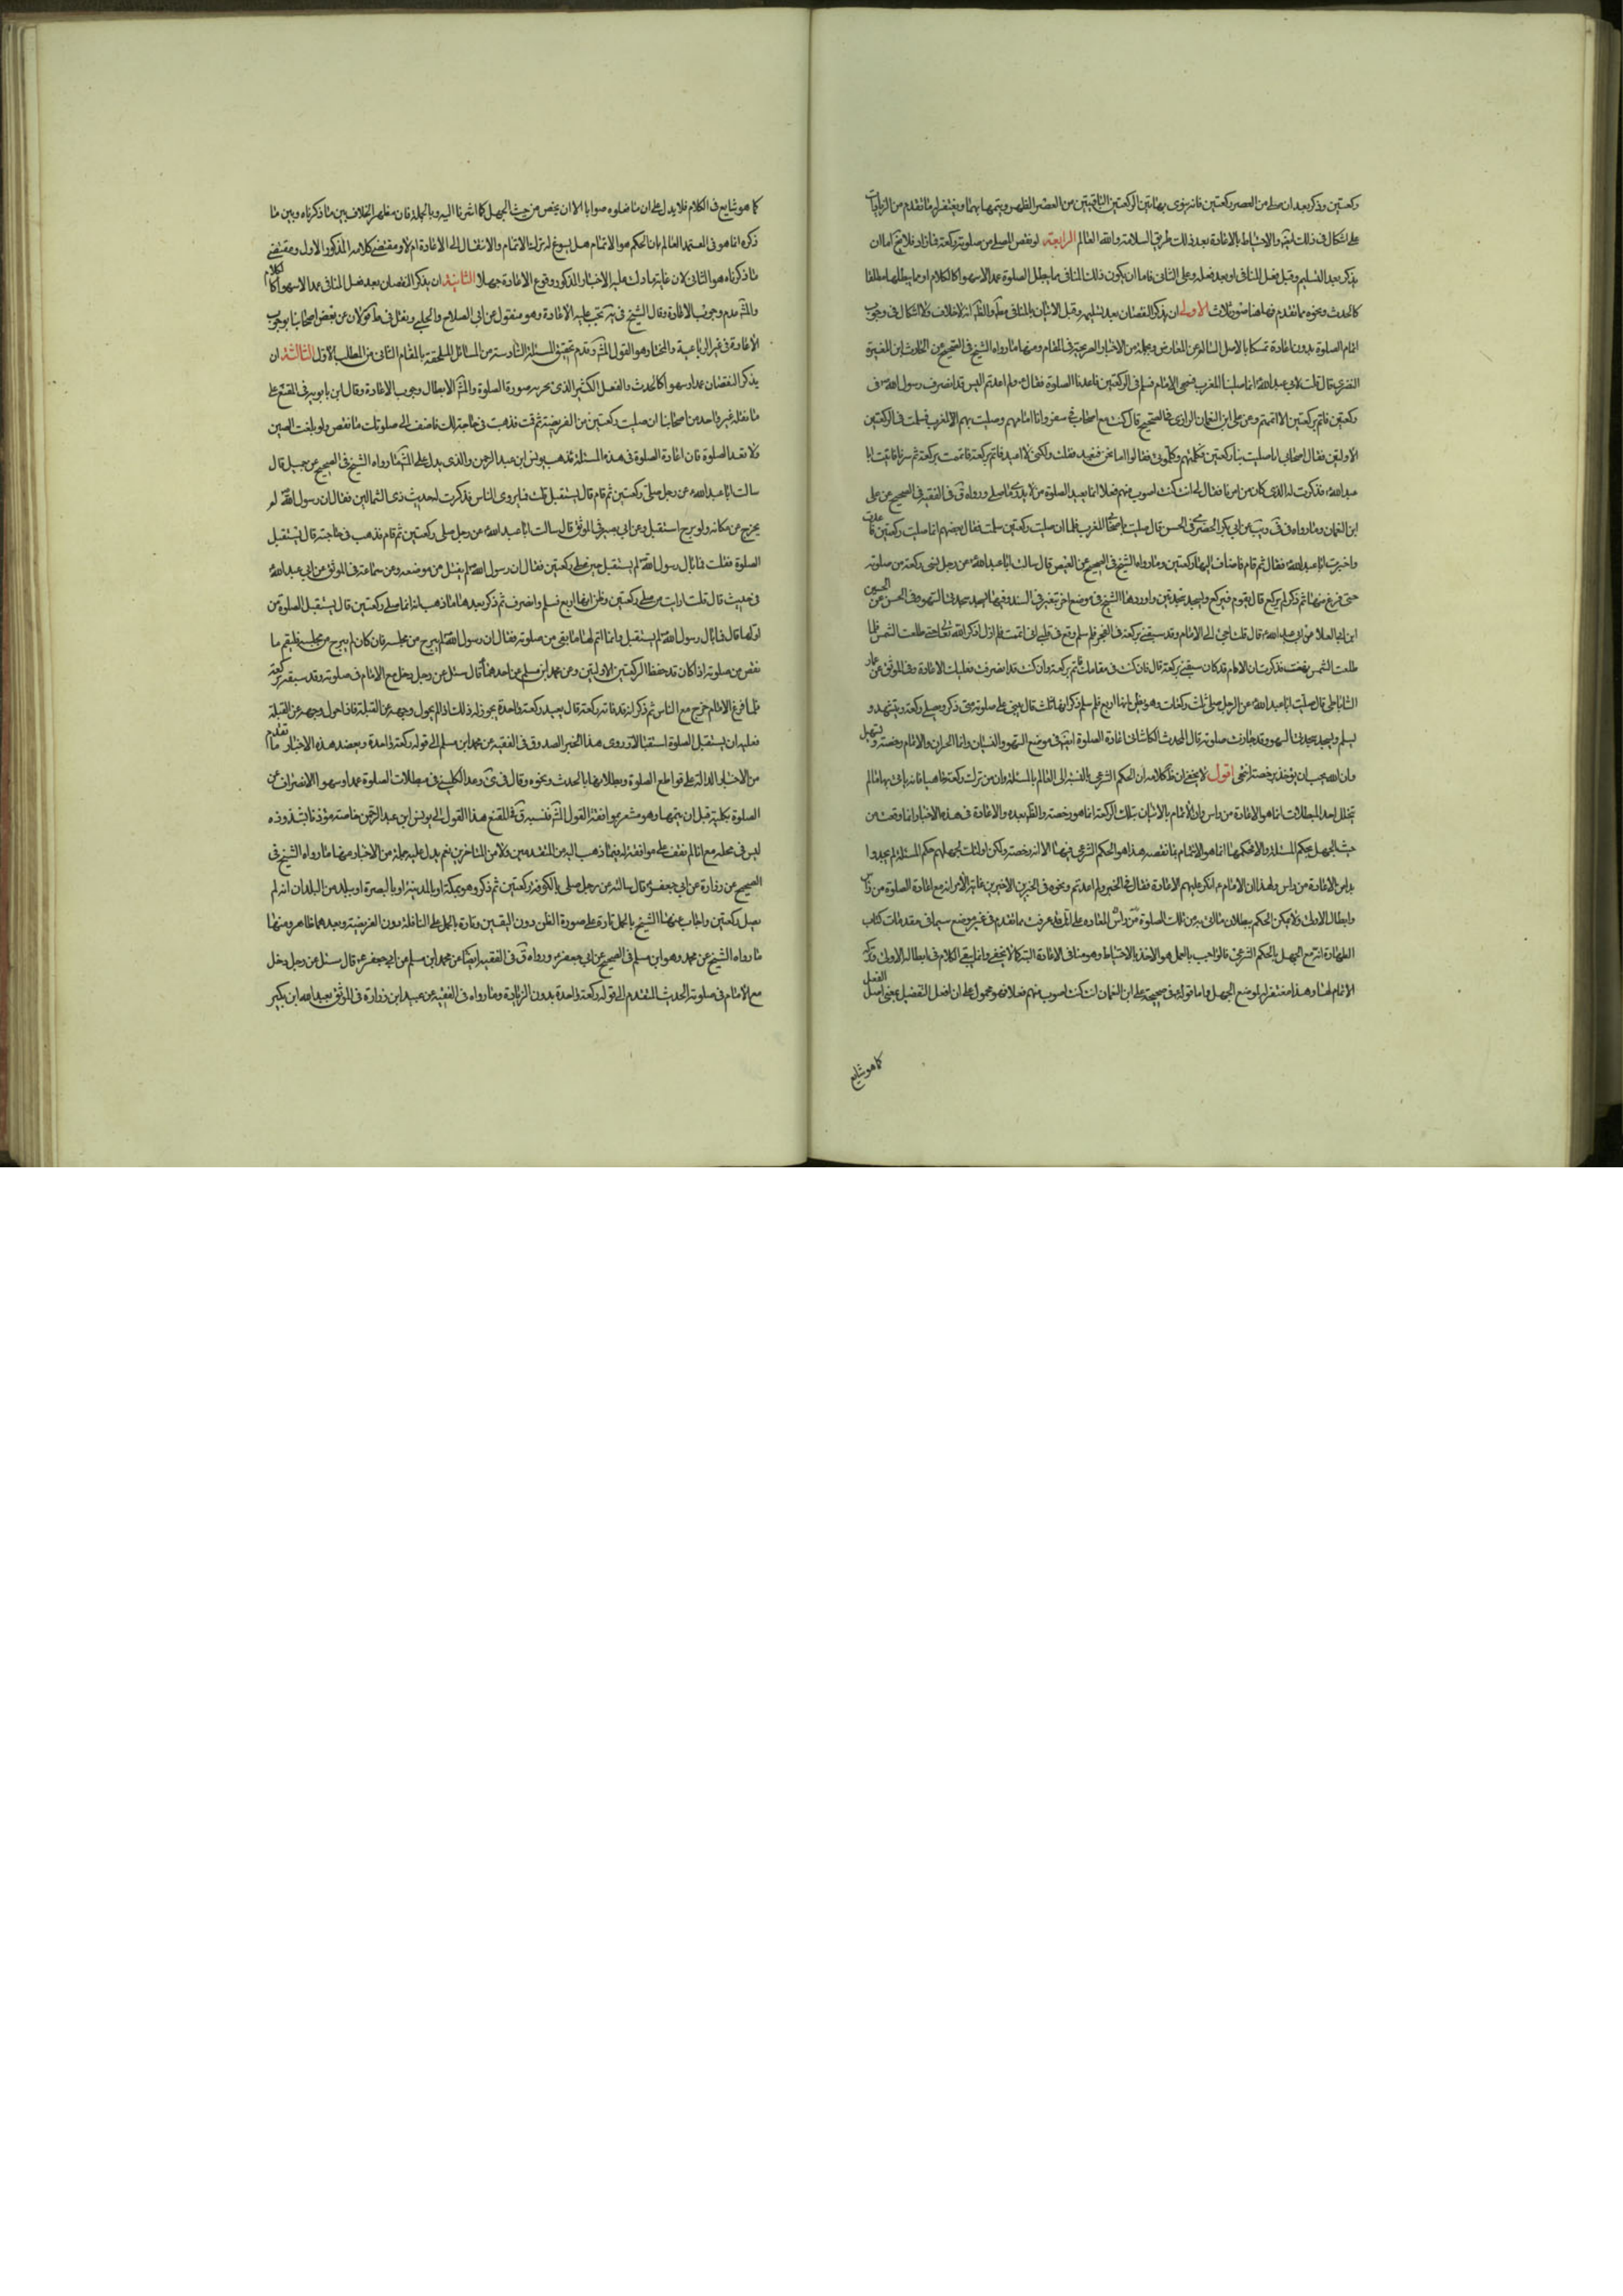 ركعتين وذكر بعد ان صلى من العصر ركعتين فانه ينوى بهاتين الركعتين الباقيتين من العصر الظهر ويتمها بهما ويغتفر له ما تقدم من الزيادات
على اشكال فى ذلك ايضا والاحتياط بالاعادة بعد ذلك طريق السلامة والله العالم الرابعة لو نقص المصلى من صلوته ركعة فما زاد فلا يخ اما ان
يذكر بعد التسليم وقبل فعل المنافى او بعد فعله وعلى الثانى فاما ان يكون ذلك المنافى مما يبطل الصلوة عمدا لا سهوا كالكلام او مما يبطلها مطلقا
كالحدث ونحوه مما تقدم فههنا صور ثلاث الاولى ان يذكر النقصان بعد تسليمه وقبل الاتيان بالمنافى مط والظ انه لا خلاف ولا اشكال فى وجوب
اتمام الصلوة بدون اعادة تمسكا بالاصل السالم عن المعارض وبجملة من الاخبار الصريحة فى المقام ومنها ما رواه الشيخ فى الصحيح عن الحارث بن المغيرة
النصرى قال قلت لابى عبد الله ع انا صلينا المغرب فسهى الامام فسلم فى الركعتين فاعدنا الصلوة فقال ع ولم اعدتم اليس قد انصرف رسول الله ص فى
ركعتين فاتم بركعتين الا اتممتم وعن على ابن النعمان الرازى فى الصحيح قال كنت مع اصحاب لى فى سفر وانا امامهم وصليت بهم المغرب فسلمت فى الركعتين
الاولتين فقال اصحابى انما صليت بنا ركعتين فكلمتهم وكلمونى فقالوا اما نحن فنعيد فقلت ولكنى لا اعيد فاتم بركعة فاتممت بركعة ثم سرنا فاتيت ابا
عبد الله ع فذكرت له الذى كان من امرنا فقال لى انت كنت اصوب منهم فعلا انما يعيد الصلوة من لا يدرى ما صلى ورواه ق فى الفقيه فى الصحيح عن على
ابن النعمان وما رواه فى فى ويب عن ابى بكر الحضرمى فى الحسن قال صليت باصحابنا المغرب فلما ان صليت ركعتين سلمت فقال بعضهم انما صليت ركعتين فاعدت
واخبرت ابا عبد الله ع فقال ثم قام فاضاف اليها ركعتين وما رواه الشيخ فى الصحيح عن العيص قال سالت ابا عبد الله ع عن رجل نسى ركعة من صلوته
حتى فرغ منها ثم ذكر انه لم يركع قال يقوم فيركع ويسجد سجدتين واوردها الشيخ فى موضع اخر بتغير فى السند وفيها يسجد سجدتى السهو وفى الحسن عن الحسين
ابن ابى العلا عن ابى عبد الله ع قال قلت اجئ الى الامام وقد سبقنى بركعة فى الفجر فلما سلم وقع فى قلبى انى اتممت فلم ازل اذكر الله تعالى حتى طلعت الشمس فلما
طلعت الشمس نهضت فذكرت ان الامام قد كان سبقنى بركعة قال فان كنت فى مقامك فاتم بركعة وان كنت قد انصرفت فعليك الاعادة وفى الموثق عن عمار
الساباطى قال سالت ابا عبد الله ع عن الرجل صلى ثلث ركعات وهو يظن انها اربع فلما سلم ذكر انها ثلث قال يبنى على صلوته متى ذكر ويصلى ركعة ويتشهد و
يسلم ويسجد سجدتى السهو وقد جازت صلوته قال المحدث الكاشانى اعادة الصلوة ايضا فى موضع السهو والنسيان وانما الجبران والاتمام رخصة وتسهيل
وان الله يحب ان يؤخذ برخصه انتهى اقول لا يخفى ان ظ كلامه ان الحكم الشرعى بالنسبة الى العالم بالمسئلة وان من ترك ركعة ناسيا فانه ياتى بها ما لم
يتخلل احد المبطلات انما هو الاعادة من راس وان الاتمام بالاتيان بتلك الركعة انما هو رخصة والظ بعده والاعادة فى هذه الاخبار انما وقعت من
حيث الجهل بحكم المسئلة والا فحكمها انما هو الاتمام بما نقصه هذا هو الحكم الشرعى فيها لا انه رخصة ولكن اولئك لجهلهم حكم المسئلة لم يجدوا
بدا من الاعادة من راس ولهذا ان الامام ع انكر عليهم الاعادة فقال فى الخبر ولم اعدتم ونحوه فى الخبرين الاخيرين غاية الامر انه مع اعادة الصلوة من راس
وابطال الاولى ولا يمكن الحكم ببطلان ما اتى به من تلك الصلوة من راس المعادة على انك قد عرفت مما تقدم فى غير موضع سيما فى مقدمات كتاب
الطهارة انه مع الجهل بالحكم الشرعى فالواجب بالعمل هو الاخذ بالاحتياط وهو هنا فى الاعادة البتة كما لا يخفى وانما يبقى الكلام فى ابطاله الاولى وترك
الاتمام لها وهذا مغتفر له لموضع الجهل واما قوله ع فى صحيحة على ابن النعمان انت كنت اصوب منهم فعلا فهو محمول على ان افعل التفضيل بمعنى اصل الفعل
كما هو شايع
كما هو شايع فى الكلام فلا يدل على ان ما فعلوه صوابا الا ان يخص من حيث الجهل كما اشرنا اليه وبالجملة فان مظهر الخلاف بين ما ذكرناه وبين ما
ذكره انما هو فى العتمد العالم بان الحكم هو الاتمام هل يسوغ له ترك الاتمام والانتقال الى الاعادة ام لا ومقتضى كلامه المذكور الاول ومقتضى
ما ذكرناه هو الثانى لان غاية ما دلت عليه الاخبار المذكور وقوع الاعادة جهلا الثانية ان يذكر النقصان بعد فعل المنافى عمدا لا سهوا كالكلام
والمش عدم وجوب الاعادة وقال الشيخ فى يه تجب عليه الاعادة وهو منقول عن ابى الصلاح والحلبى ونقل فى ط قولا عن بعض اصحابنا بوجوب
الاعادة فى غير الرباعية والمختار هو القول المش وتقدم تحقيق المسئلة السادسة من المسائل الملحقة بالمقام الثانى من المطلب الاول الثالثة ان
يذكر النقصان عمدا وسهوا كالحدث والفعل الكثير الذى يخرج به عن صورة الصلوة والمش الابطال وجوب الاعادة وقال ابن بابويه فى المقنع على
ما نقله غير واحد من اصحابنا ان صليت ركعتين من الفريضة ثم قمت فذهبت فى حاجة لك فاضف الى صلوتك ما نقص ولو بلغت الصين
ولا تعد الصلوة فان اعادة الصلوة فى هذه المسئلة مذهب يونس ابن عبد الرحمن والذى يدل على المش ما رواه الشيخ فى الصحيح عن جميل قال
سالت ابا عبد الله ع عن رجل صلى ركعتين ثم قام قال يستقبل قلت فما يروى الناس فذكرت له حديث ذى الشمالين فقال ان رسول الله ص لم
يخرج عن مكانه ولو برح استقبل وعن ابى بصير فى الموثق قال سالت ابا عبد الله ع عن رجل صلى ركعتين ثم قام فذهب فى حاجته قال يستقبل
الصلوة فقلت فما بال رسول الله ص لم يستقبل حين صلى ركعتين فقال ان رسول الله ص لم ينفتل من موضعه وعن سماعة فى الموثق عن ابى عبد الله ع
فى حديث قال قلت ارايت من صلى ركعتين وظن انها اربع فسلم وانصرف ثم ذكر بعد ما ذهب انه انما صلى ركعتين قال يستقبل الصلوة من
اولها قال فما بال رسول الله ص لم يستقبل وانما اتم لها ما بقى من صلوته فقال ان رسول الله ص لم يبرح من مجلسه فان كان لم يبرح من مجلسه فليتم ما
نقص من صلوته اذا كان قد حفظ الركعتين الاولتين وعن محمد ابن مسلم عن احدهما ع قال سئل عن رجل دخل مع الامام فى صلوته وقد سبقه بركعة
فلما فرغ الامام خرج مع الناس ثم ذكر انه قد فاته ركعة قال يعيد ركعة واحدة يجوز له ذلك اذا لم يحول وجهه عن القبلة فاذا حول وجهه عن القبلة
فعليه ان يستقبل الصلوة استقبالا وروى هذا الخبر الصدوق فى الفقيه عن محمد ابن مسلم الى قوله ركعة واحدة ويعضد هذه الاخبار ما تقدم
من الاخبار الدالة على قواطع الصلوة وبطلانها بالحدث ونحوه وقال فى فى وعد الكلينى فى مبطلات الصلوة عمدا وسهوا الانصراف عن
الصلوة بكلية قبل ان يتمها وهو مشعر بموافقة القول المش فنسبة ق فى المقنع هذا القول الى يونس ابن عبد الرحمن خاصة مؤذنا بشذوذه
ليس فى محله مع انا لم نقف على موافقة له فيما ذهب اليه من المتقدمين ولا من المتاخرين نعم يدل عليه جملة من الاخبار منها ما رواه الشيخ فى
الصحيح عن زرارة عن ابى جعفر ع قال سالته عن رجل صلى بالكوفة ركعتين ثم ذكر وهو بمكة او بالمدينة او بالبصرة او ببلد من البلدان انه لم
يصل ركعتين واجاب عنها الشيخ بالحمل تارة على صورة الظن دون اليقين وتارة بالحمل على النافلة دون الفريضة وبعدهما ظاهر ومنها
ما رواه الشيخ عن محمد وهو ابن مسلم فى الصحيح عن ابى جعفر ع ورواه ق فى الفقيه ايضا عن محمد ابن مسلم عن ابى جعفر ع قال سئل عن رجل دخل
مع الامام فى صلوته الحديث المتقدم الى قوله ركعة واحدة بدون الزيادة وما رواه فى الفقيه عن عبيد ابن زرارة فى الموثق بعبد الله ابن بكير